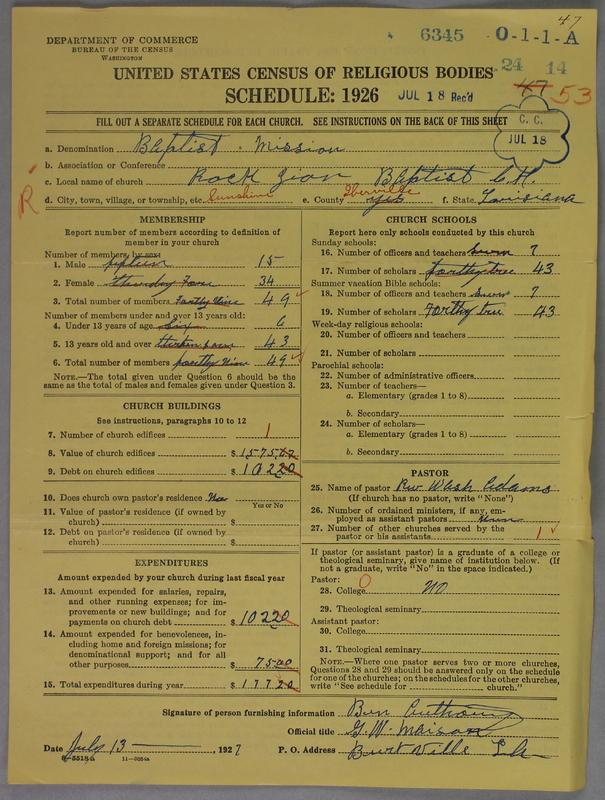 47
DEPARTMENT OF COMMERCE
BUREAU OF THE CENSUS
WASHINGTON
6345 0-1-1-A
24 14
47 53
UNITED STATES CENSUS OF RELIGIOUS BODIES
SCHEDULE: 1926 JUL 18 Rec'd
C. C.
JUL 18
FILL OUT A SEPARATE SCHEDULE FOR EACH CHURCH. SEE INSTRUCTIONS ON THE BACK OF THIS SHEET
a. Denomination Baptist Mission
b. Association or Conference
c. Local name of church Rock Zion Baptist C.H.
R
d. City, town, village, or township, etc. Sunshine e. County Iberville yes f. State Louisiana
MEMBERSHIP
Report number of members according to definition of
member in your church
Number of members by sex:
1. Male fifteen 15
2. Female 34
3. Total number of members 49
Number of members under and over 13 years old:
4. Under 13 years of age six 6
5. 13 years old and over 43
6. Total number of members 49
NOTE.—The total given under Question 6 should be the
same as the total of males and females given under Question 3.
CHURCH BUILDINGS
See instructions, paragraphs 10 to 12
7. Number of church edifices 1
8. Value of church edifices $
9. Debt on church edifices $
10. Does church own pastor's residence
Yes or No
11. Value of pastor's residence (if owned by
church) $
12. Debt on pastor's residence (if owned by
church) $
EXPENDITURES
Amount expended by your church during last fiscal year
13. Amount expended for salaries, repairs,
and other running expenses; for im-
provements or new buildings; and for
payments on church debt $ 10220
14. Amount expended for benevolences, in-
cluding home and foreign missions; for
denominational support; and for all
other purposes 7500
15. Total expenditures during year $ 17720
CHURCH SCHOOLS
Report here only schools conducted by this church
Sunday schools:
16. Number of officers and teachers seven 7
17. Number of scholars 43
Summer vacation Bible schools:
18. Number of officers and teachers seven 7
19. Number of scholars 43
Week-day religious schools:
20. Number of officers and teachers
21. Number of scholars
Parochial schools:
22. Number of administrative officers
23. Number of teachers—
a. Elementary (grades 1 to 8)
b. Secondary
24. Number of scholars—
a. Elementary (grades 1 to 8)
b. Secondary
PASTOR
25. Name of pastor Rev Wash Adams
(If church has no pastor, write "None")
26. Number of ordained ministers, if any, em-
ployed as assistant pastors
27. Number of other churches served by the
pastor or his assistants 1
If pastor (or assistant pastor) is a graduate of a college or
theological seminary, give name of institution below. (If
not a graduate, write "No" in the space indicated.)
Pastor:
28. College 0 no
29. Theological seminary
Assistant pastor:
30. College
31. Theological seminary
NOTE.—Where one pastor serves two or more churches,
Questions 28 and 29 should be answered only on the schedule
for one of the churches; on the schedules for the other churches,
write "See schedule for church."
Signature of person furnishing information Ben Anthony
Official title G. W.
Date July 13, 1927 P. O. Address Burtville La
8-5518a 11-8054a